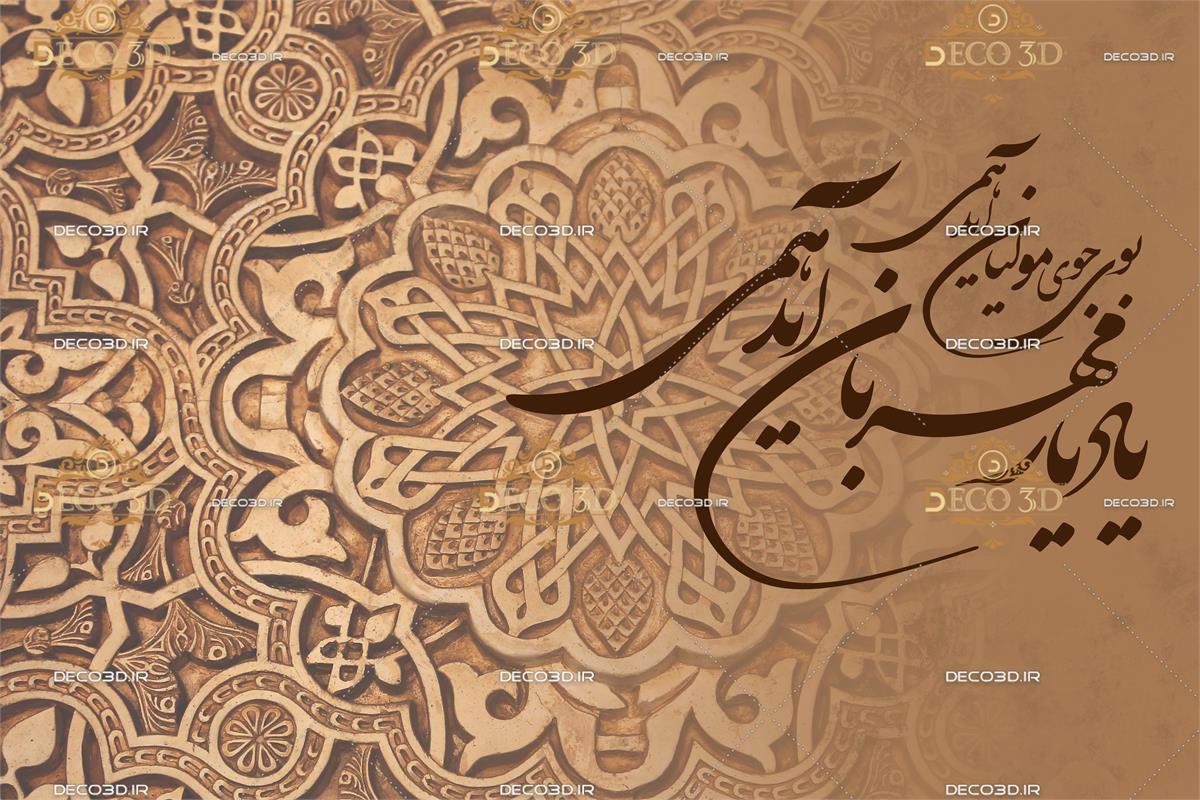 DECO 3D DECO3D.IR DECO 3D DECO3D.IR DECO 3D DECO3D.IR
بوی جوی مولیان آید همی
DECO3D.IR DECO3D.IR DECO3D.IR
یاد یار مهربان آید همی
DECO3D.IR DECO3D.IR DECO3D.IR
DECO 3D DECO3D.IR DECO 3D DECO3D.IR DECO 3D DECO3D.IR
DECO3D.IR DECO3D.IR DECO3D.IR
DECO3D.IR DECO3D.IR DECO3D.IR